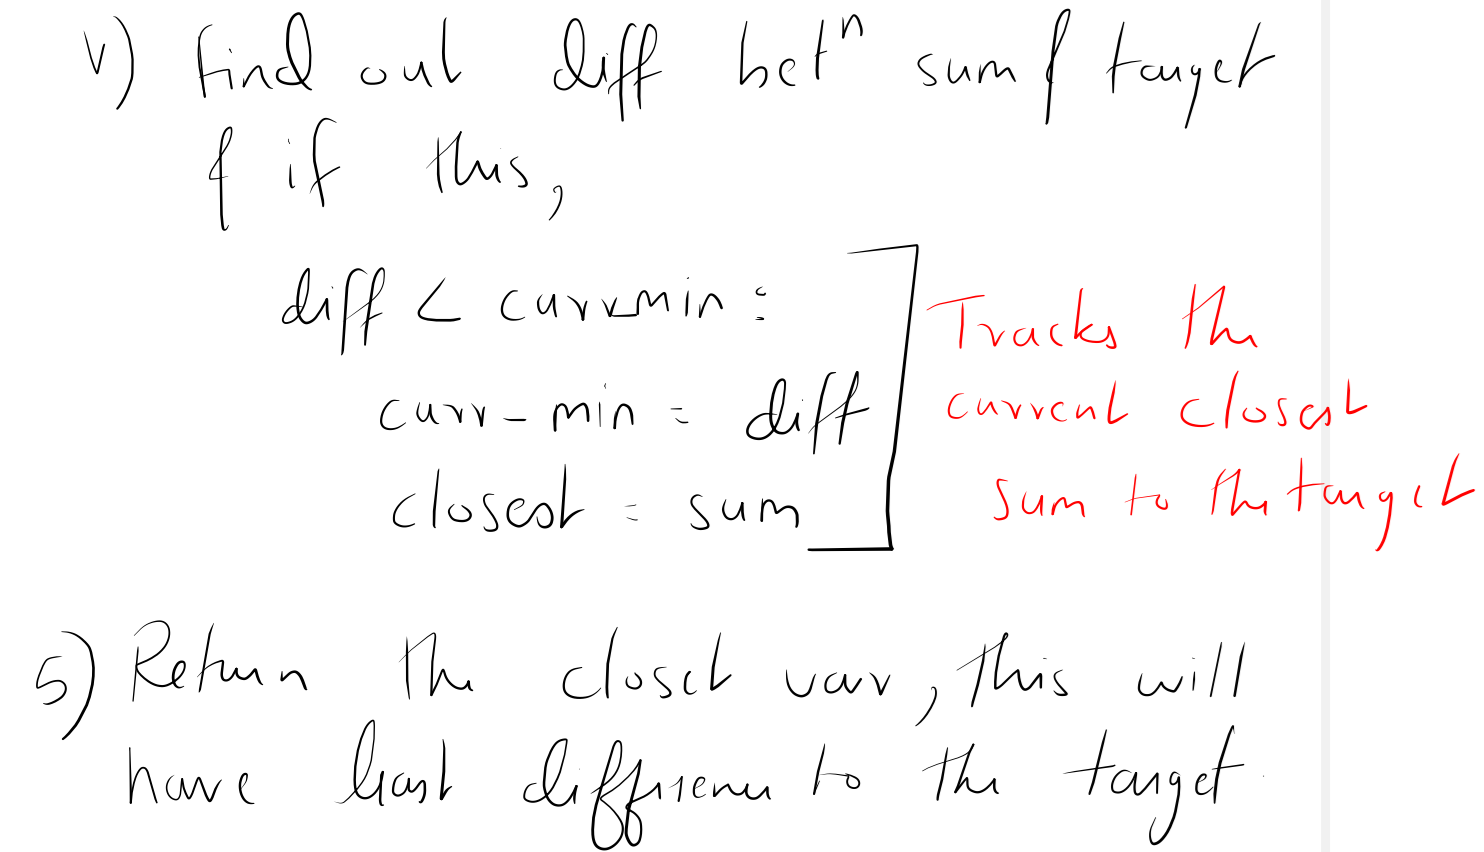 v) Find out diff betⁿ sum & target
& if this,
diff < curr_min :
curr_min = diff
closest = sum
Tracks the
current closest
sum to the target
5) Return the closet var, this will
have least difference to the target